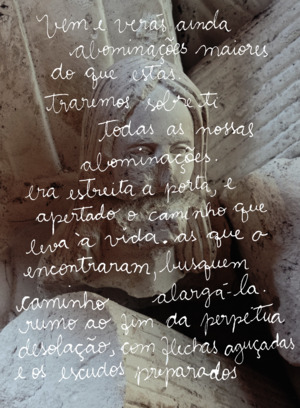 vem e verás ainda
abominações maiores
do que estas.
traremos sobre ti
todas as nossas
abominações.
era estreita a porta, e
apertado o caminho que
leva à vida. as que o
encontraram, busquem
alargá-la.
caminho
rumo ao fim da perpétua
desolação, com flechas aguçadas
e os escudos preparados